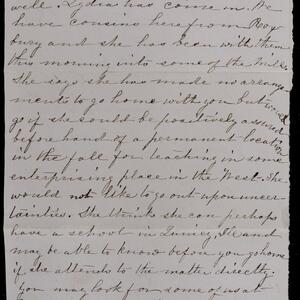 well. Lydia has come in. We
have cousins here from Rox
bury and she has been with them
this morning into some of the Mills.
She says she has made no arrange
ments to go home with you but would
go if she could be positively assured
before hand of a permanent location
in the fall for teaching in some
enterprising place in the West. She
would not like to go out upon uncer
tainties. She thinks she can perhaps
have a school in Quincy, Ill and
may be able to know before you go home
if she attends to the matter directly.
you may look for some of us at